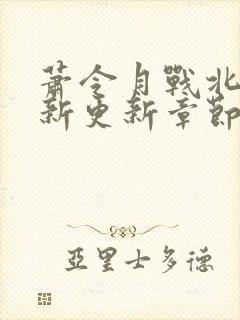 蕭令月戰北
新更新章節
亞里士多德